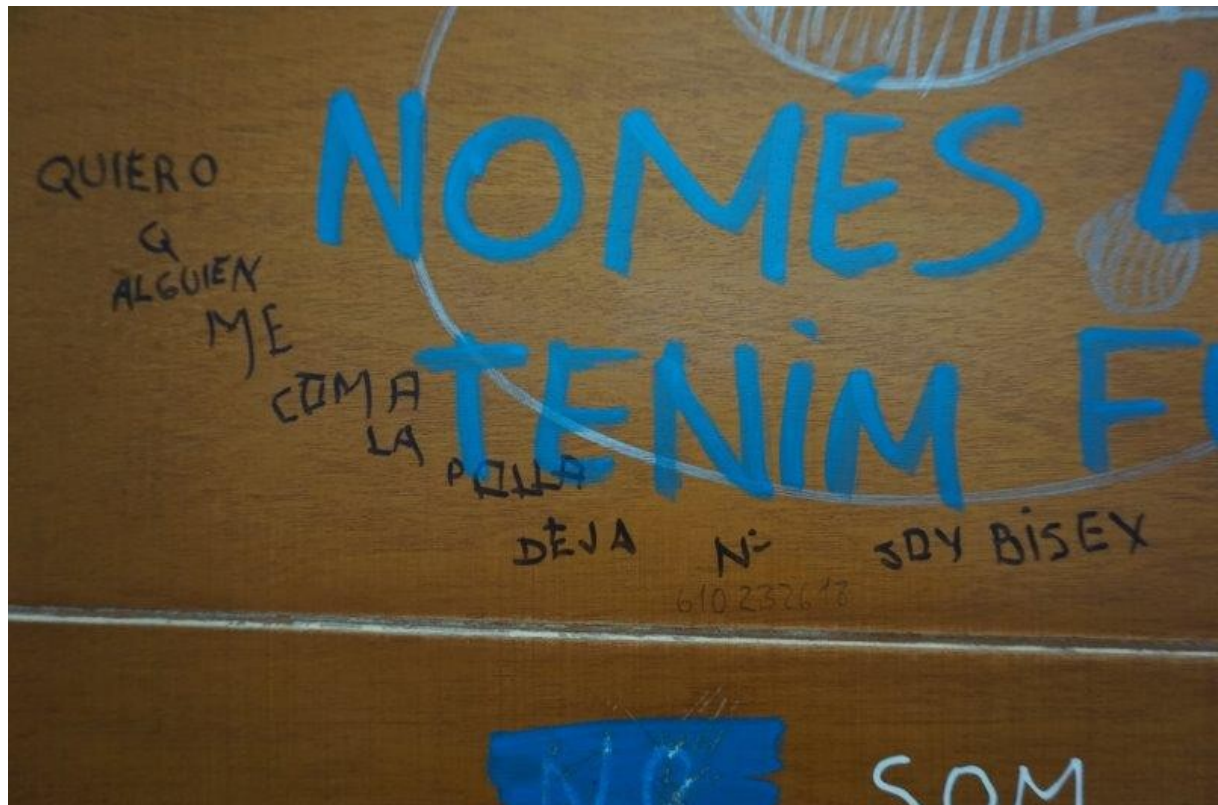 NOMÉS L
TENIM F
QUIERO
Q
ALGUIEN
ME
COMA
LA
POLLA
DEJA Nº SOY BISEX
610232618
NO SOM